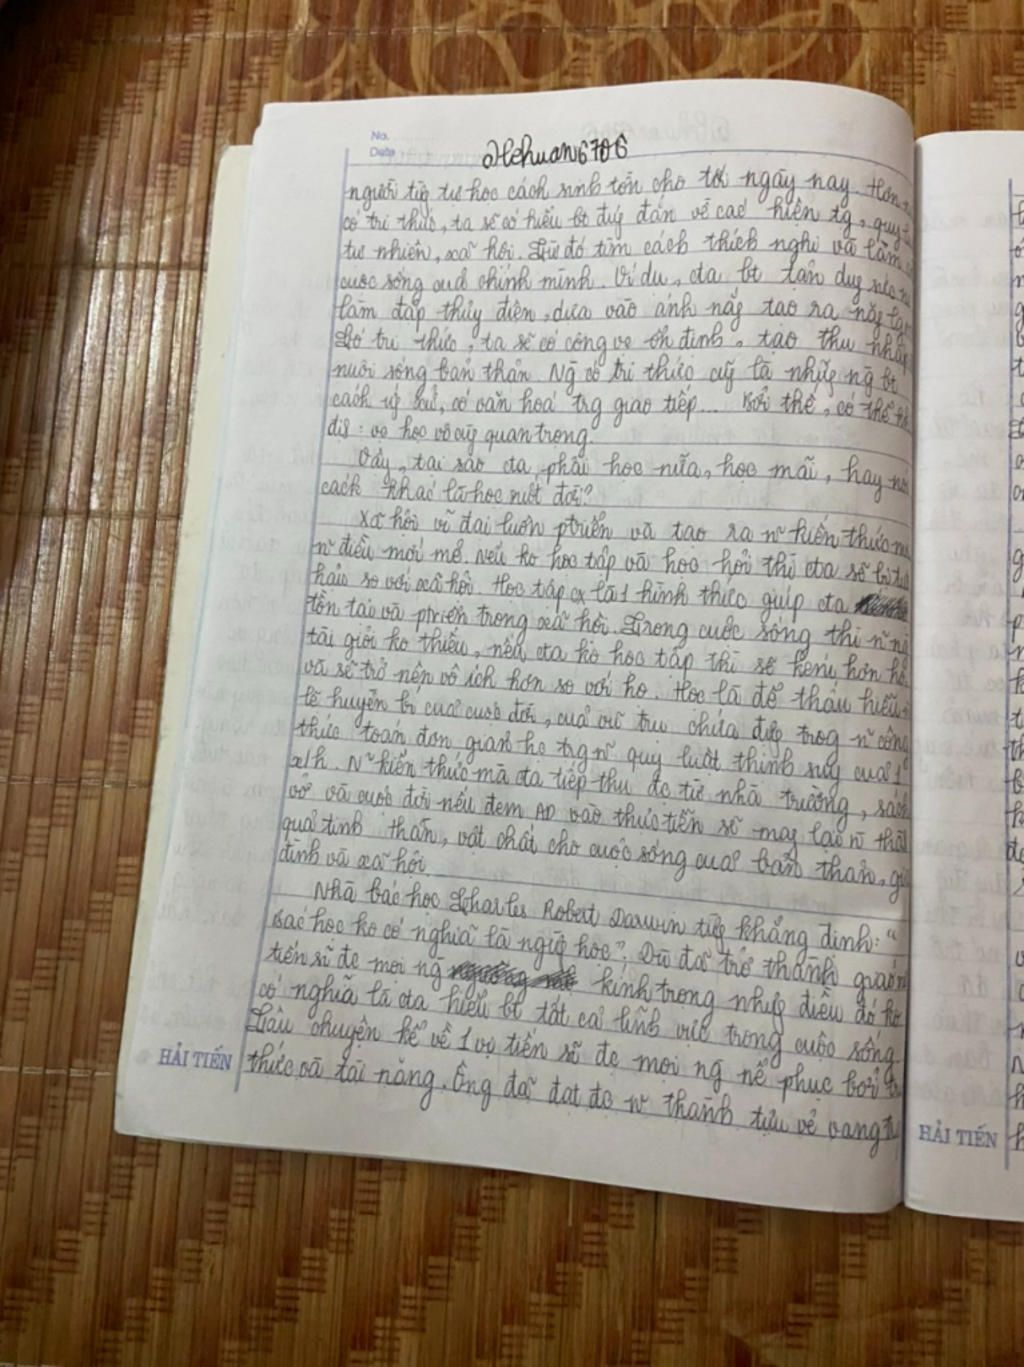 No.
Date
Hehuan6706
người từg tự học cách sinh tồn cho tới ngày nay. Hơn
có tri thức, ta sẽ có hiểu bt đúg đắn về các hiện tg, quy
tự nhiên, xã hội. Từ đó tìm cách thích nghi và làm
cuộc sống cuả chính mình. Ví dụ, cta bt tận dụg nước
làm đập thủy điện, dựa vào ánh nắg tạo ra năg lg
Có tri thức, ta sẽ có công vc ổn định, tạo thu nhập
nuôi sống bản thân. Ng có tri thức cũg là nhữg ng bt
cách ứg xử, có văn hoá trg giao tiếp... Bởi thế, có thể
đis: vc học vô cùg quan trọng.
Vậy, tại sao cta phải học nữa, học mãi, hay nói
cách khác là học suốt đời?
Xã hội vĩ đại luôn ptriển và tạo ra n~ kiến thức
n~ điều mới mẻ. Nếu ko học tập và học hỏi thì cta sẽ bị tụt
hậu so với xã hội. Học tập cx là 1 hình thức giúp cta
tồn tại và ptriển trong xã hội. Trong cuộc sống thì n~ ng
tài giỏi ko thiếu, nếu cta ko học tập thì sẽ kém hơn họ
và sẽ trở nên vô ích hơn so với họ. Học là để thấu hiểu
lẽ huyền bí cuả cuộc đời, cuả vũ trụ chứa đựg trog n~ công
thức toán đơn giản hc trg n~ quy luật thịnh suy cuả 1
xh. N~ kiến thức mà cta tiếp thu đc từ nhà trường, sách
vở và cuộc đời nếu đem AD vào thực tiễn sẽ mag lại n~ thành
quả tinh thần, vật chất cho cuộc sống cuả bản thân, gia
đình và xã hội.
Nhà bác học Charles Robert Darwin từg khẳng định: "
Bác học ko có nghĩa là ngừg học". Dù đã trở thành giáo
tiến sĩ đc mọi ng kính trọng nhưg điều đó ko
có nghĩa là cta hiểu bt tất cả lĩnh vực trong cuộc sống.
Câu chuyện kể về 1 vị tiến sĩ đc mọi ng nể phục bởi tri
thức và tài năng. Ông đã đạt đc n~ thành tựu vẻ vang
HẢI TIẾN
HẢI TIẾN